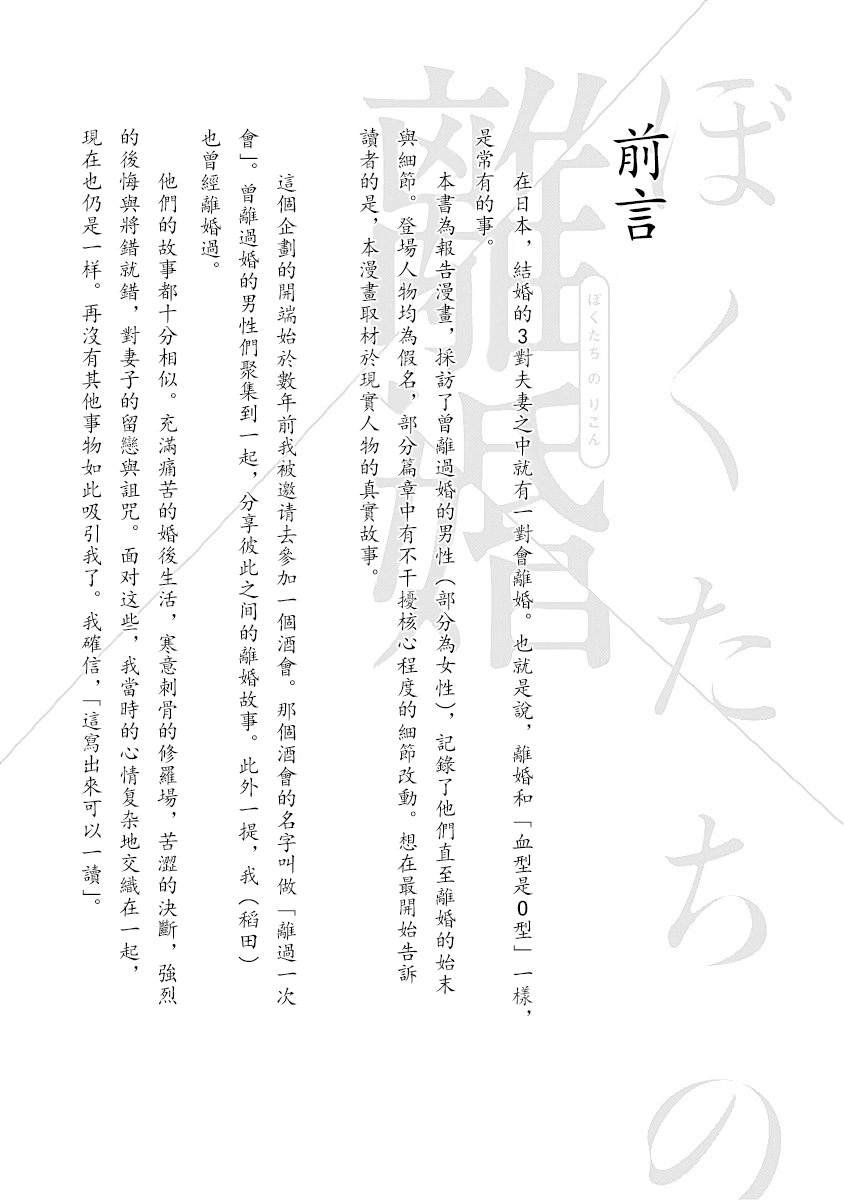 ぼくたちの
離婚
ぼくたち の りこん
前言
在日本，結婚的3對夫妻之中就有一對會離婚。也就是說，離婚和「血型是O型」一樣，
是常有的事。
本書為報告漫畫，採訪了曾離過婚的男性（部分為女性），記錄了他們直至離婚的始末
與細節。登場人物均為假名，部分篇章中有不干擾核心程度的細節改動。想在最開始告訴
讀者的是，本漫畫取材於現實人物的真實故事。
這個企劃的開端始於數年前我被邀请去參加一個酒會。那個酒會的名字叫做「離過一次
會」。曾離過婚的男性們聚集到一起，分享彼此之間的離婚故事。此外一提，我（稻田）
也曾經離婚過。
他們的故事都十分相似。充滿痛苦的婚後生活，寒意刺骨的修羅場，苦澀的決斷，強烈
的後悔與將錯就錯，對妻子的留戀與詛咒。面对这些，我當時的心情复杂地交織在一起，
現在也仍是一样。再沒有其他事物如此吸引我了。我確信，「這寫出來可以一讀」。